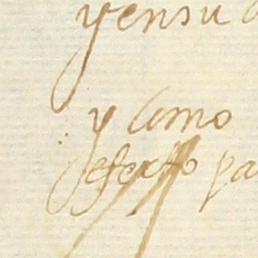 y en su
y como
efecto pa